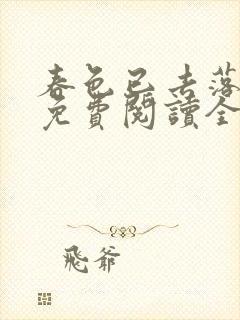 春色已去落
免費閱讀全
飛爺